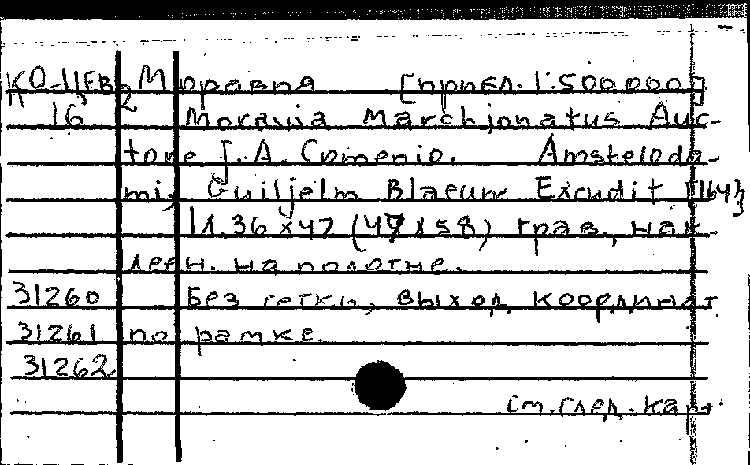 Моравия [прибл. 1:500000]
16 Moravia Marchionatus Auc-
tore J. A. Comenio. Amsteloda-
mi, Guiljelm Blaeuw Excudit
1л. 36x47 (49x58) грав., нак-
леен. на полотне.
31260 Без сетки, выход координат
31261 по рамке.
31262
См. след. карт.